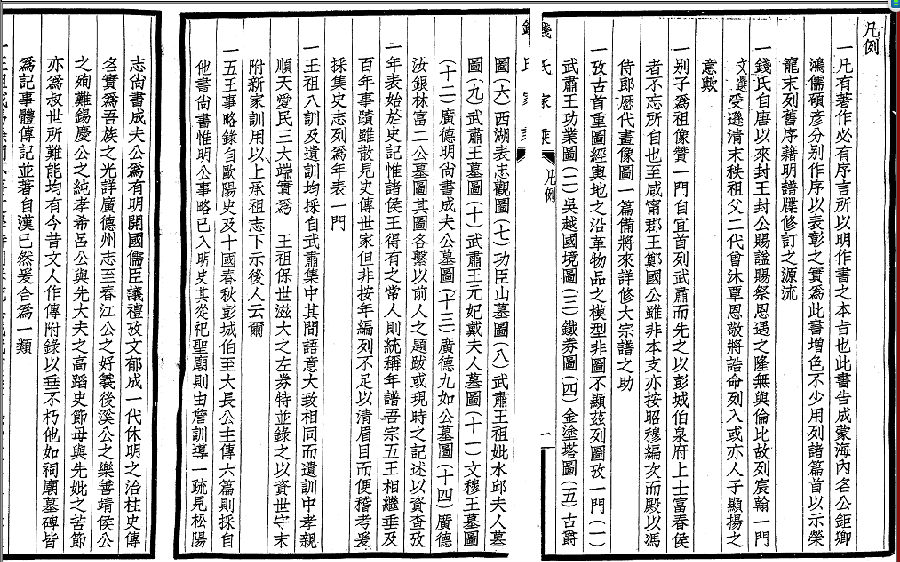 凡例
一凡有著作必有序言所以明作書之本旨也此書告成蒙海內名公鉅卿
鴻儒碩彥分別作序以表彰之實爲此書增色不少用列諸篇首以示榮
寵末列舊序藉明譜牒修訂之源流
一錢氏自唐以來封王封公賜諡賜祭恩遇之隆無與倫比故列宸翰一門
文選受遜清末秩祖父二代曾沐覃恩敬將誥命列入或亦人子顯揚之
意歟
一別子爲祖像贊一門自宜首列武肅而先之以彭城伯泉府上士富春侯
者不忘所自也至咸甯郡王鄭國公雖非本支亦按昭穆編次而殿以馮
侍郎歷代畫像圖一篇備將來詳修大宗譜之助
一攷古首重圖經輿地之沿革物品之模型非圖不顯茲列圖攷一門(一)
武肅王功業圖(二)吳越國境圖(三)鐵券圖(四)金塗塔圖(五)古爵
錢氏家乘
凡例
一
圖(六)西湖表忠觀圖(七)功臣山墓圖(八)武肅王祖妣水邱夫人墓
圖(九)武肅王墓圖(十)武肅王元妃戴夫人墓圖(十一)文穆王墓圖
(十二)廣德明尚書成夫公墓圖(十三)廣德九如公墓圖(十四)廣德
汝銀林富二公墓圖其圖各繫以前人之題跋或現時之記述以資查攷
一年表始於史記惟諸侯王得有之常人則統稱年譜吾宗五王相繼垂及
百年事蹟雖散見史傳世家但非按年編列不足以清眉目而便稽考爰
採集史志列爲年表一門
一王祖八訓及遺訓均採自武肅集中其間語意大致相同而遺訓中孝親
順天愛民三大端實爲 王祖保世滋大之左券特並錄之以資世守末
附新家訓用以上承祖志下示後人云爾
一五王事略錄自歐陽史及十國春秋彭城伯至大長公主傳六篇則採自
他書尚書惟明公事略已入明史其從祀聖廟則由詹訓導一疏見松陽
志尚書成夫公爲有明開國儒臣議禮攷文郁成一代休明之治柱史傳
名實爲吾族之光詳廣德州志至春江公之好義後溪公之樂善靖侯公
之殉難錫慶公之純孝希呂公與先大夫之高蹈史節母與先妣之苦節
亦爲叔世所難能均有今昔文人作傳附錄以垂不朽他如祠廟墓碑皆
爲記事體傳記並著自漢已然爰合爲一類